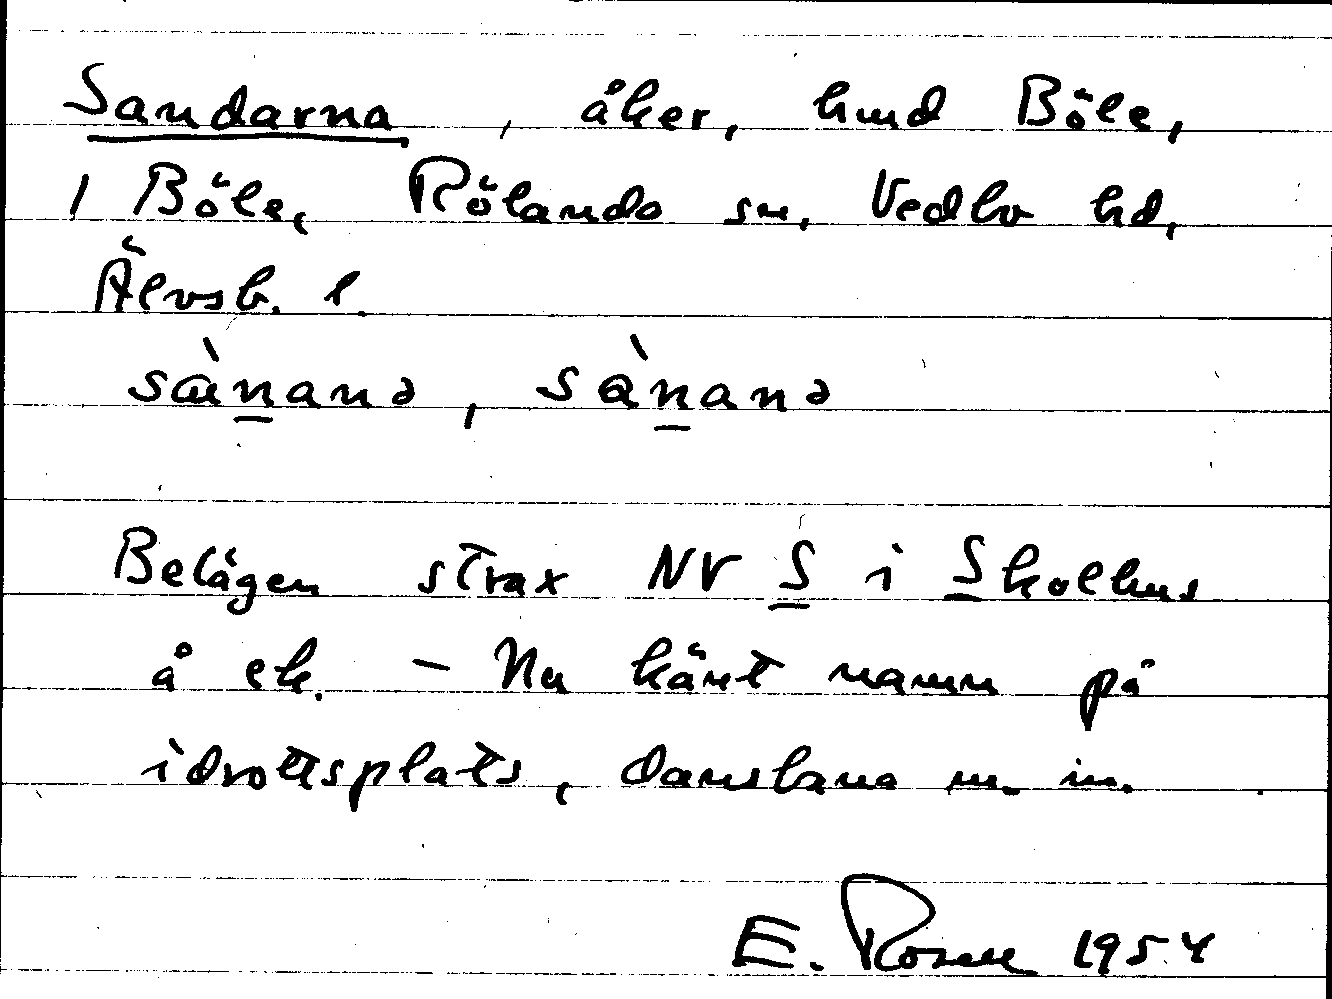 Sandarna, åker, hmd Böle,
1 Böle, Rölanda sn, Vedbo hd,
Älvsb. l.
sànanə, sànanə
Belägen strax NV S i Skolhus
å ek. – Nu känt namn på
idrottsplats, dansbana m. m.
E. Rosell 1954